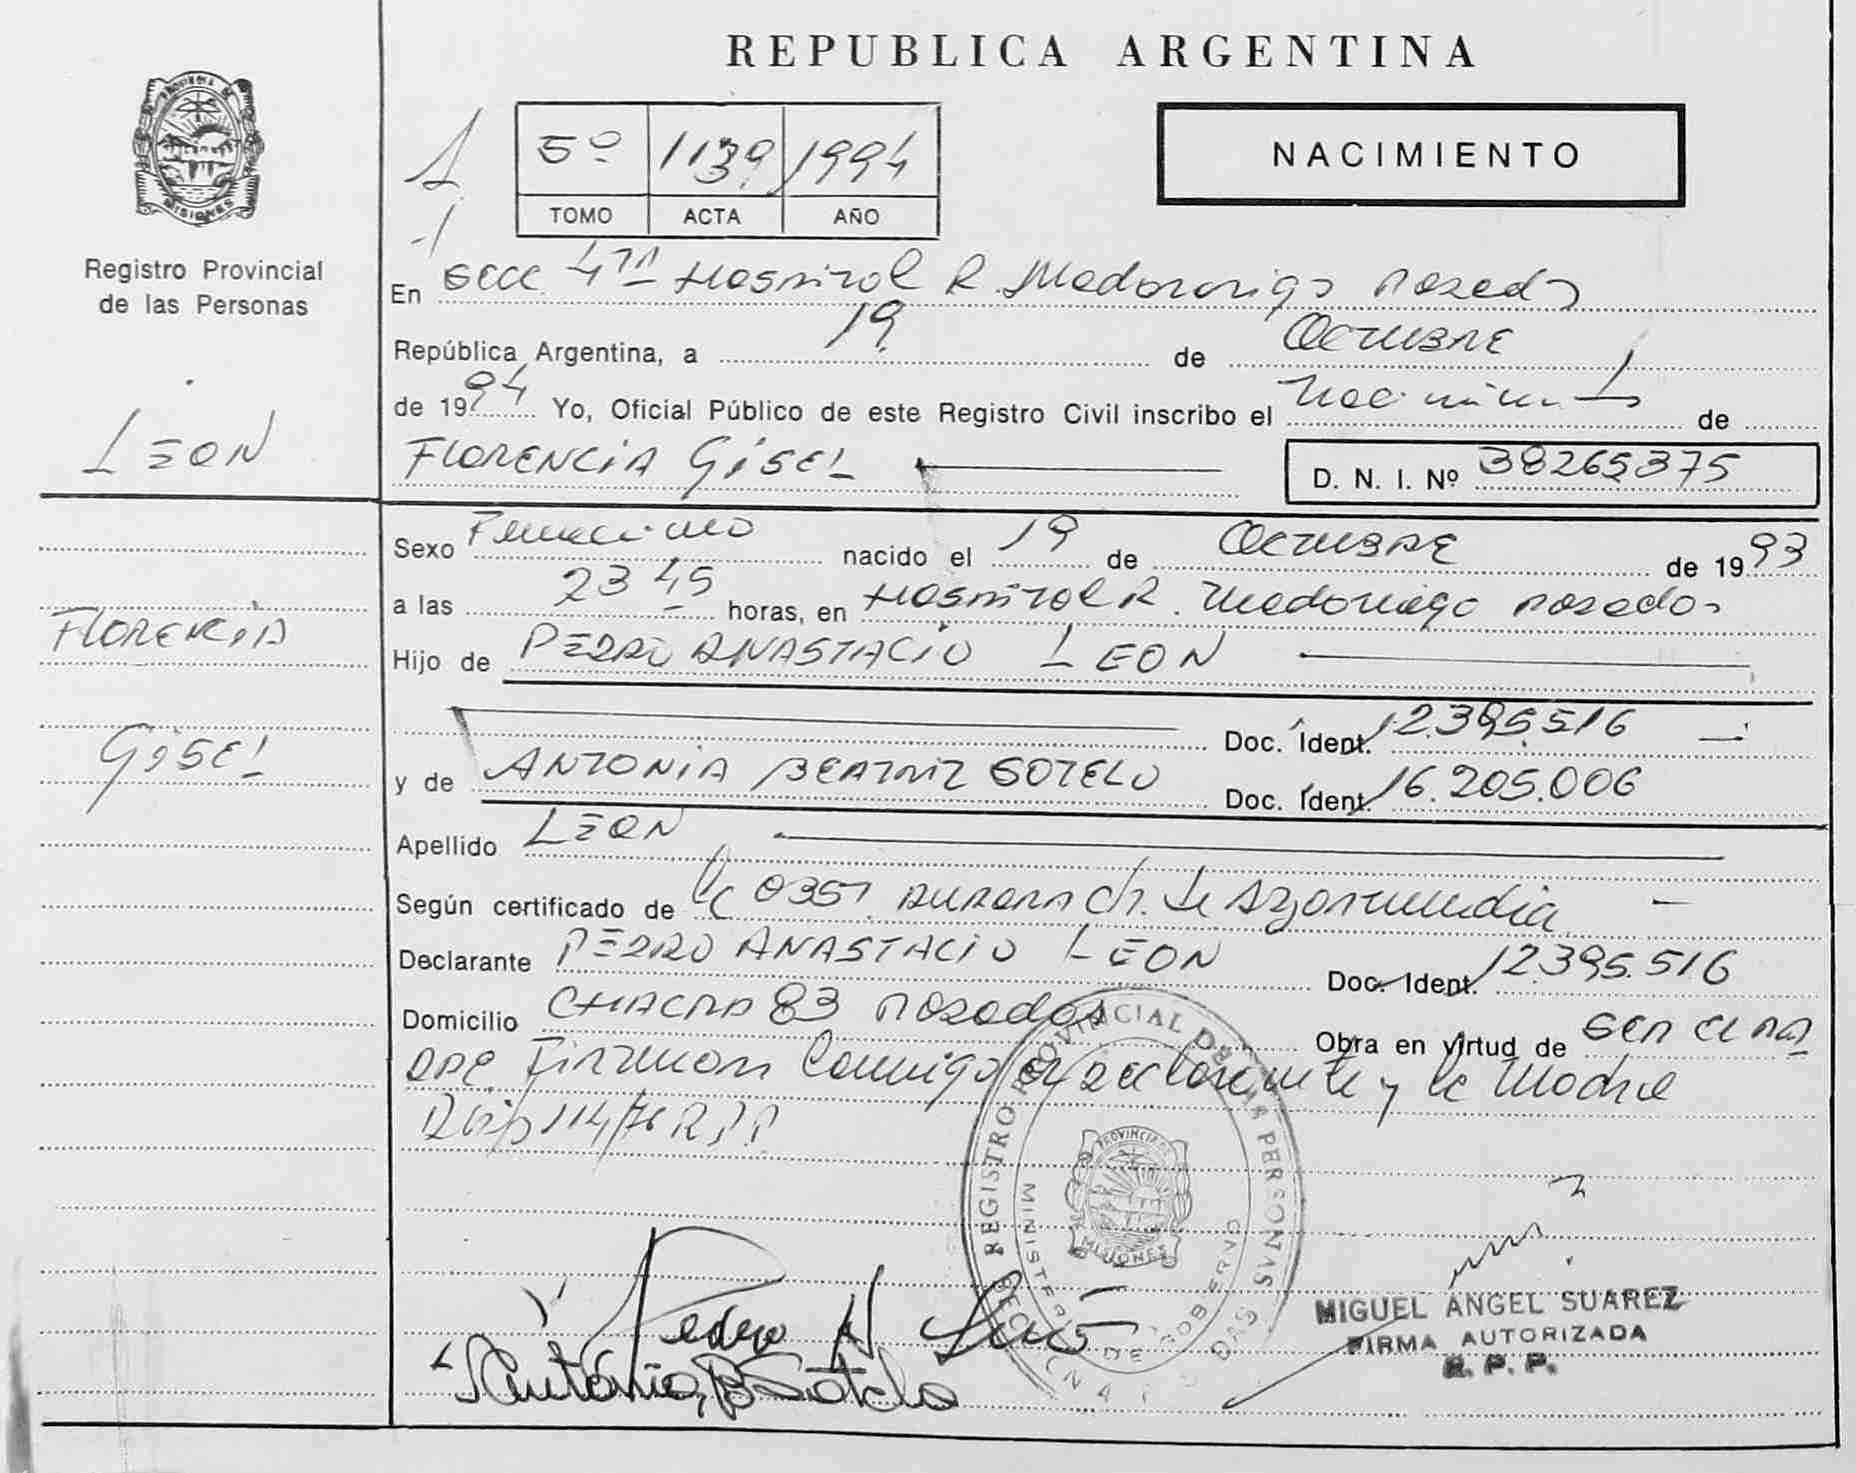 REPUBLICA ARGENTINA
PROVINCIA DE
MISIONES
Registro Provincial
de las Personas
1
5º 1139 1994
TOMO ACTA AÑO
NACIMIENTO
En Secc 4ta Hospital R. Madariaga Posadas
República Argentina, a 19 de Octubre
de 1994 Yo, Oficial Público de este Registro Civil inscribo el Nacimiento de
LEON
FLORENCIA GISEL
D. N. I. Nº 38265375
Sexo Femenino nacido el 19 de Octubre de 1993
a las 23 45 horas, en Hospital R. Madariaga Posadas
FLORENCIA
Hijo de PEDRO ANASTACIO LEON
Doc. Ident. 12.395.516
GISEL
y de ANTONIA BEATRIZ SOTELO Doc. Ident. 16.205.006
Apellido LEON
Según certificado de
Declarante PEDRO ANASTACIO LEON Doc. Ident. 12.395.516
Domicilio CHACRA 83 Posadas Obra en virtud de
Firman Conmigo declarante y la Madre
114/76 R.P.P
REGISTRO PROVINCIAL DE LAS PERSONAS
MINISTERIO DE GOBIERNO
PROVINCIA
MISIONES
POSADAS
Pedro A León
Antonia B Sotelo
MIGUEL ANGEL SUAREZ
FIRMA AUTORIZADA
R. P. P.